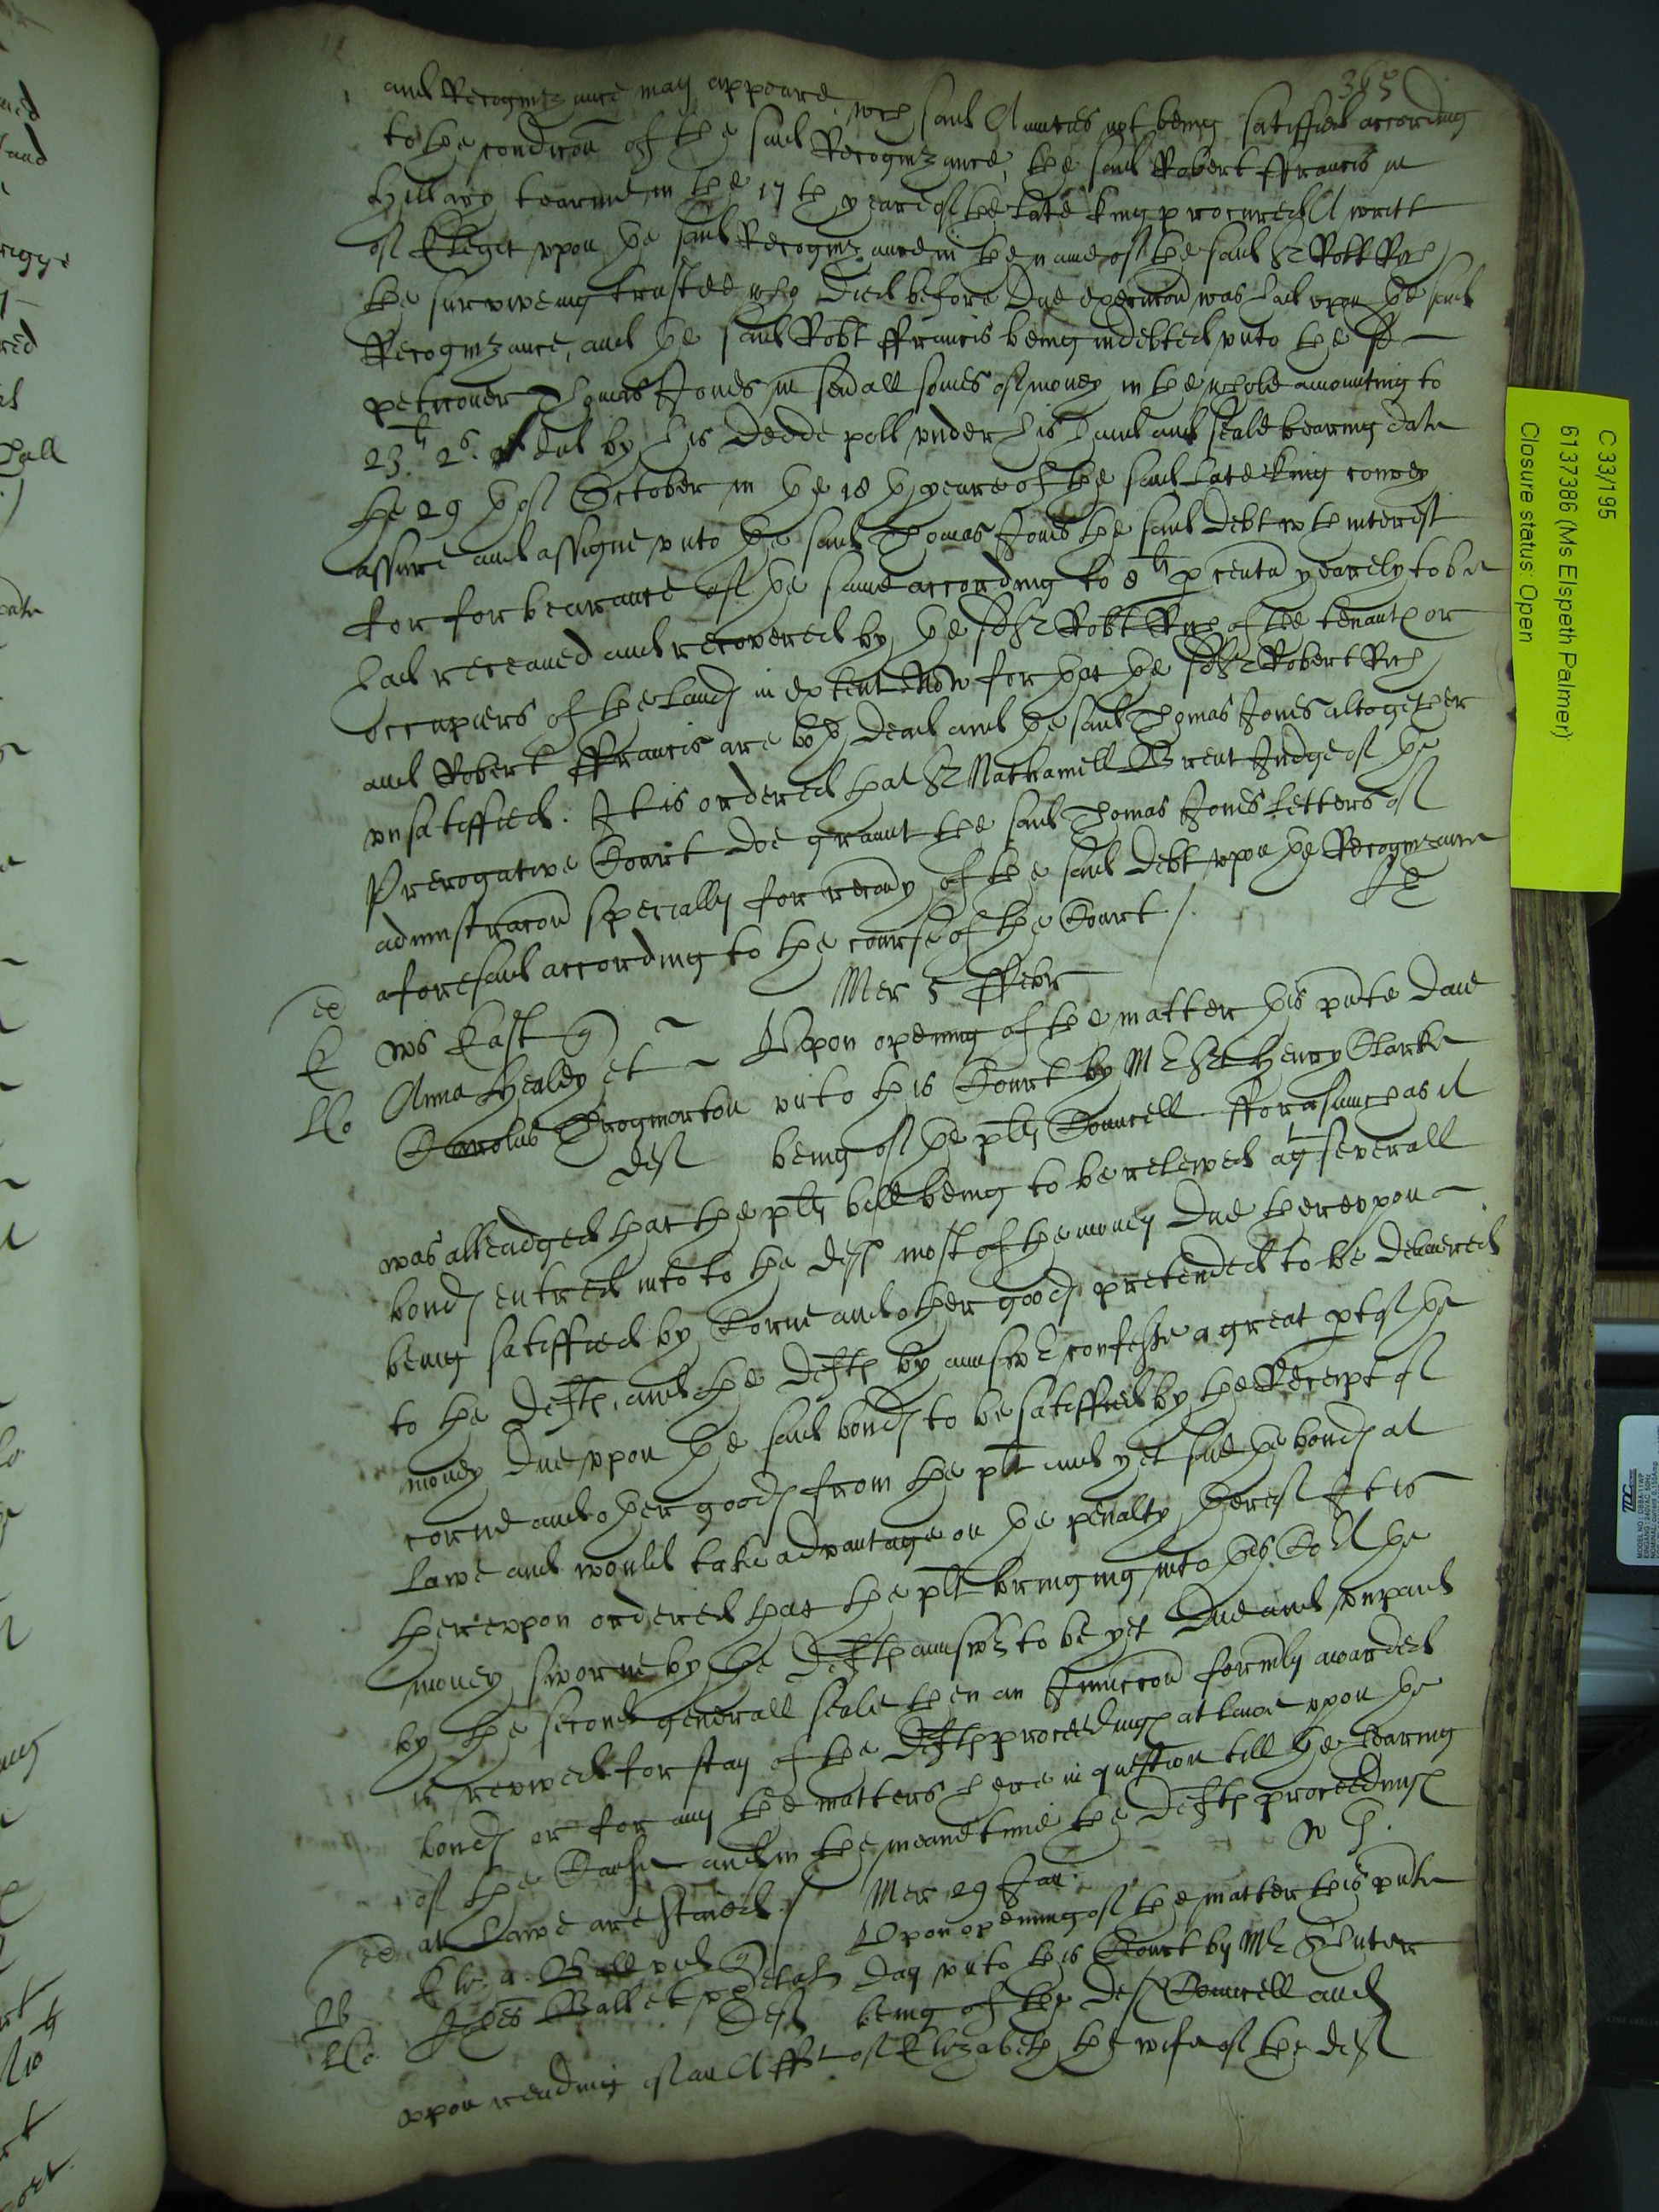 365
and Recognizance may appeare, wch said Annuities not being satisfied according
to the condicon of the said Recognizance, the said Robert ffrancis in
Hillary tearme in the 17 th yeare of the late king procured A writt
of Elegit upon the said Recognizance in the name of the said Sr Robt Rich
the surviveing trustee who died before due execucon was had upon the said
Recognizance, and the said Robt ffrancis being indebted unto the sd
peticoner Thomas Jones in sevall somes of money in the whole amounting to
23li 2s did by his deede poll under his hand and seale bearing date
the 29 th of October in the 18 th yeare of the said late king convey
assure and assigne unto the said Thomas Jones the said debt wth interest
for forbearance of the same according to 8li p centu yearely to be
had receaved and recovered by the sd Sr Robt Rich of the tenants or
occupiers of the lands in extent. Now for that the sd Sr Robert Rich
and Robert ffrancis are both dead and the said Thomas Jones altogether
unsatisfied. It is ordered that Sr Nathaniell Brent Judge of the
Prerogative Court doe graunt the said Thomas Jones letters of
administracon specially for recovy of the said debt upon the Recognizance
aforesaid according to the course of the Court /
Mer 5 ffebr
Ws East
Anna Healey et
Carolus Throgmorton
def
Upon opening of the matter this pnte daie
unto this Court by Mr St Henry Clarke
being of the plts Councell. fforasmuch as it
was alleadged that the plts bill being to be releived agt severall
bonds entred into to the def most of the money due thereupon
being satisfied by Corne and other goods pretended to be delivered
to the defts, and the defts by answr confesse a great pt of the
money due upon the said bonds to be satisfied by the Receipt of
corne and other goods from the plt and yet sue the bonds at
Lawe and would take advantage on the penalty thereof It is
thereupon ordered that the plt bringing into this Co't the
money sworne by the defts answr to be yet due and unpaid
by the second generall seale then an Injuncon formly awarded
is revived for stay of the defts proceedings at lawe upon the
bonds or for any the matters here in question till the hearing
of the Cause and in the meane time the defts proceedings
at Lawe are staied. /
Mer 29 Jan.
Johes Ball et
def
Upon opening of the matter this pnte
day unto this Court by Mr
being of the def Councell and
upon reading of an Affit of Elizabeth the wife of the def
C 33/195
6137386 (Ms Elspeth Palmer)
Closure status: Open